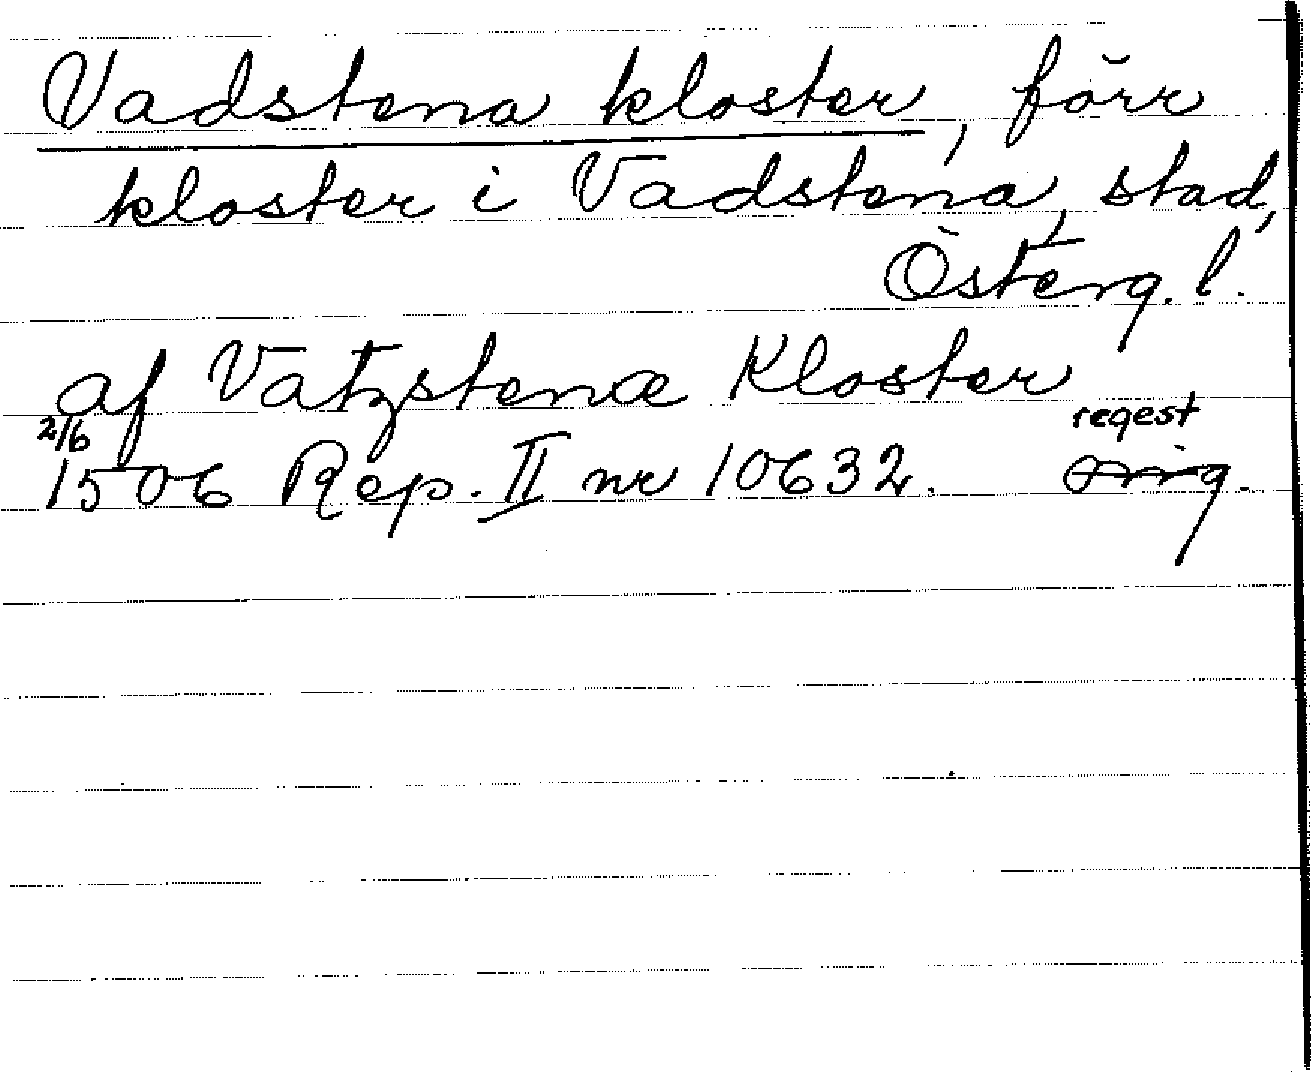 Vadstena kloster, förr
kloster i Vadstena, stad,
Österg. l.
af Vatzstenæ Kloster
2/6 regest
1506 Rep. II nr 10632. orig.